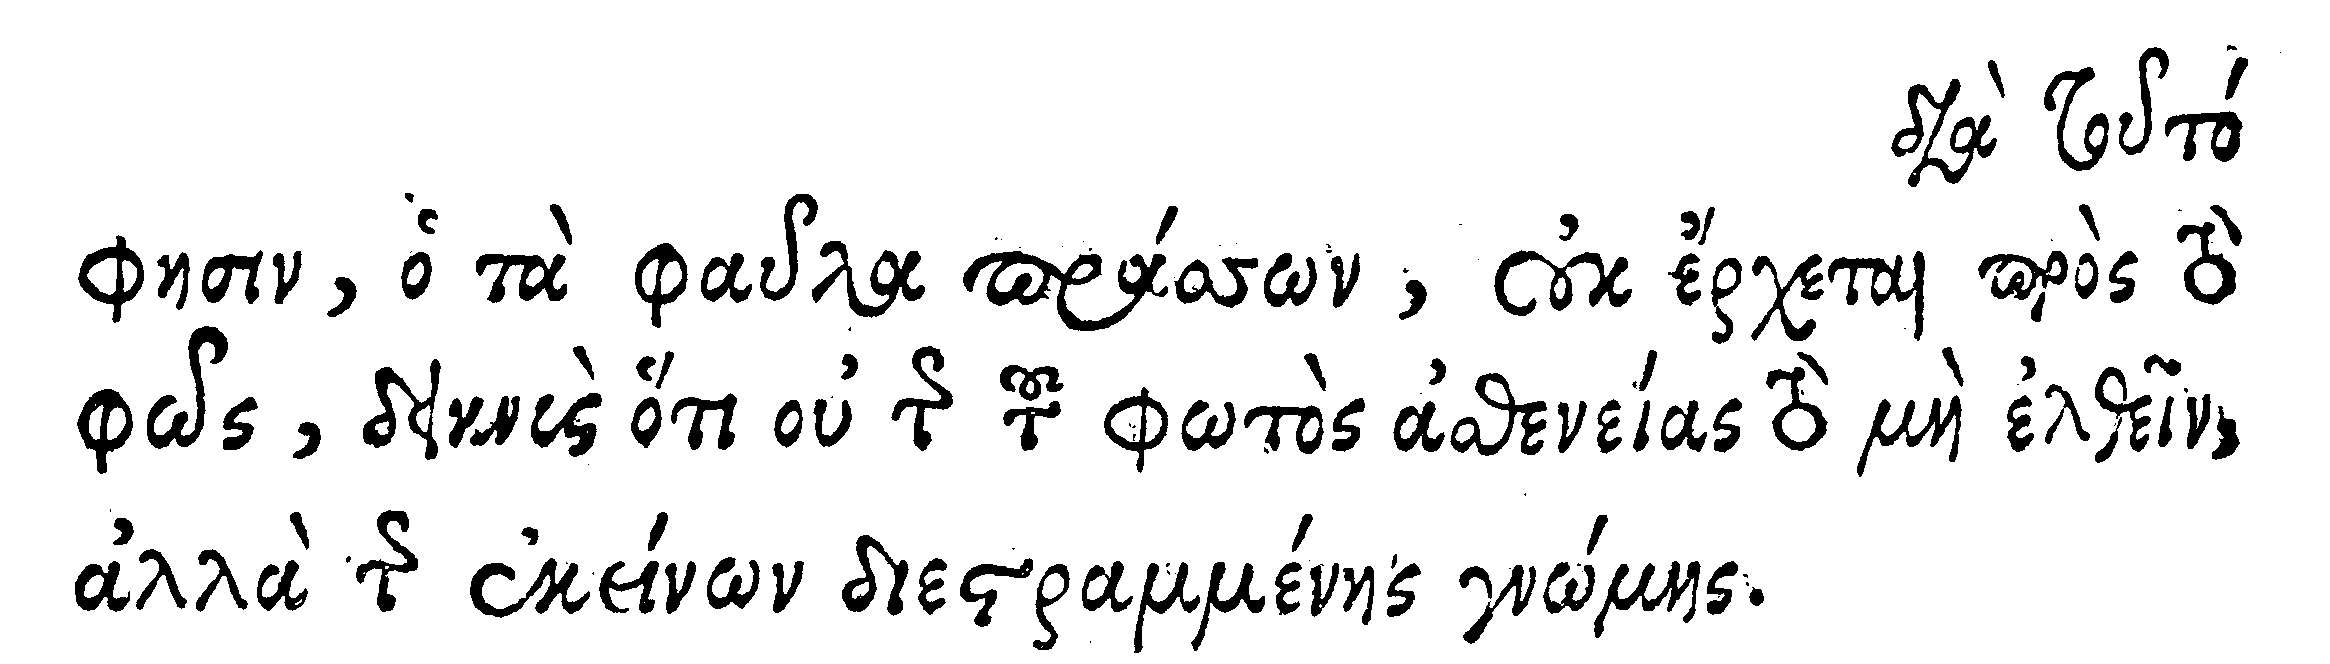 διὰ τοῦτό
φησιν, ὁ τὰ φαῦλα πράσσων, οὐκ ἔρχεται πρὸς τὸ
φῶς, δεικνὺς ὅτι οὐ τῆς τοῦ φωτὸς ἀσθενείας τὸ μὴ ἐλθεῖν,
ἀλλὰ τῆς ἐκείνων διεστραμμένης γνώμης.